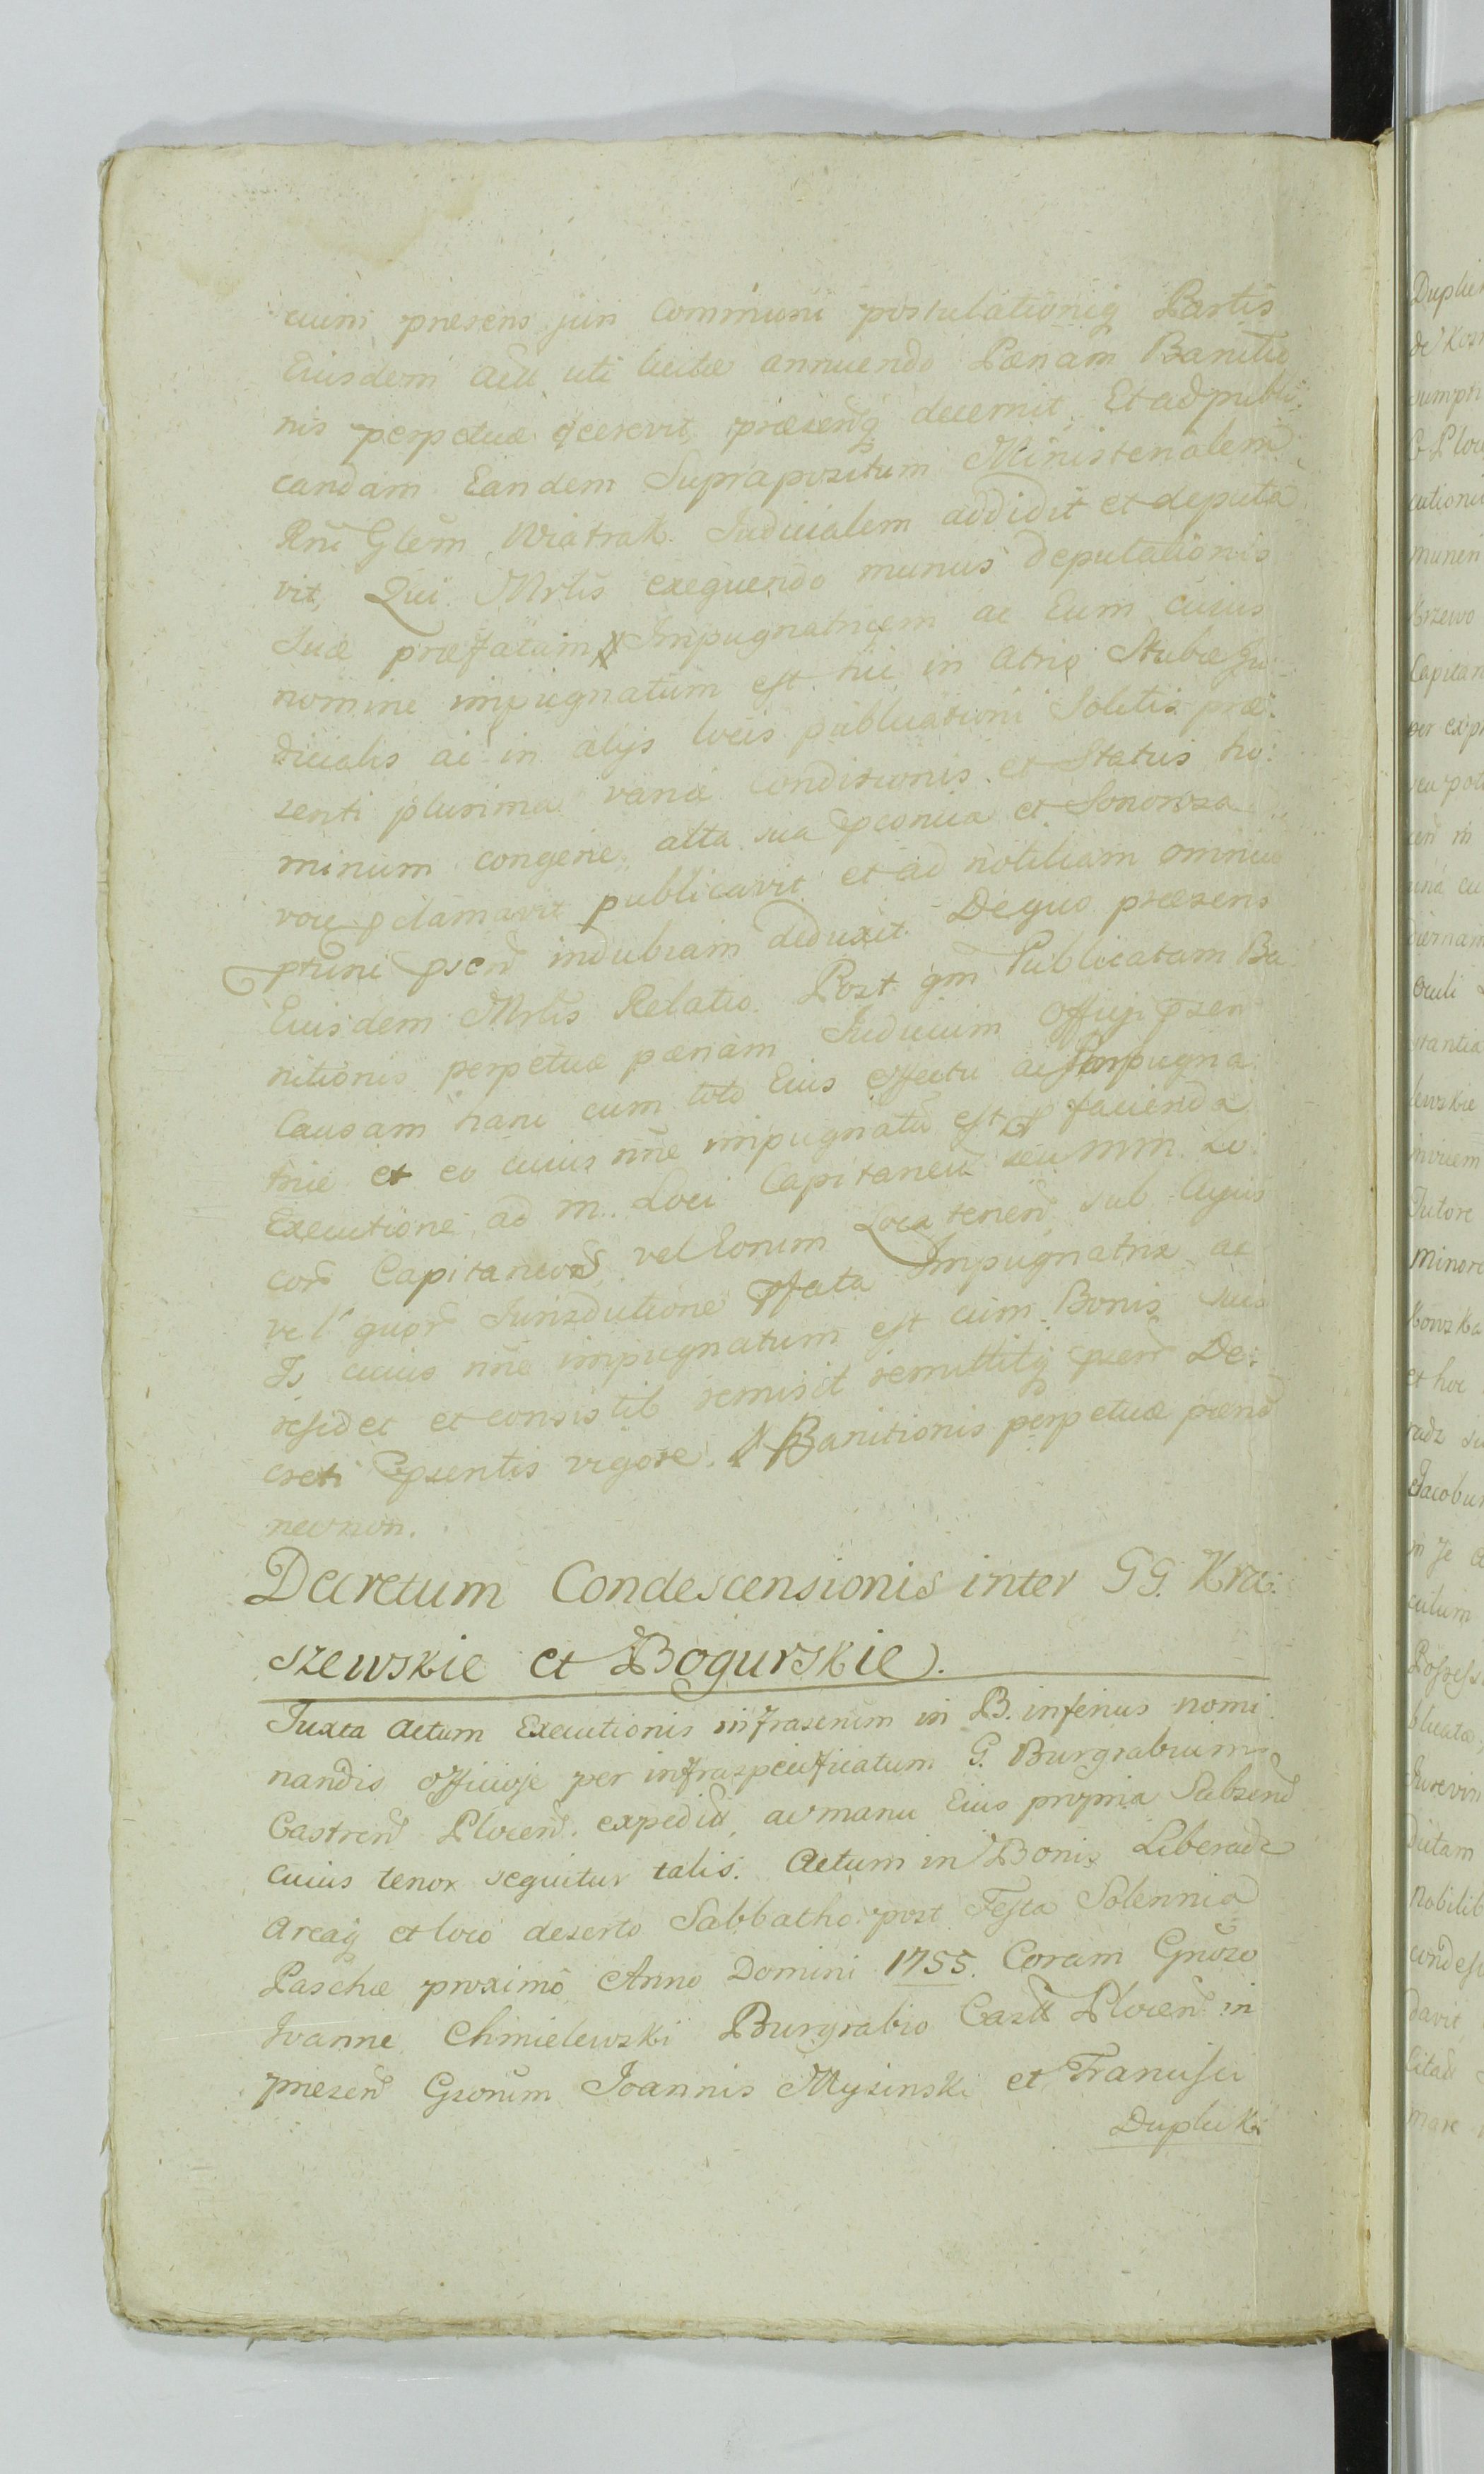 cuius præsens juri communi postulationiq Partis
Eiusdem actu uti licitæ annuendo Pænam Banitio
nis perpetuæ decrevit, præsensq decernit, Et ad publi:
candam Eandem Suprapositum Ministerialem
Rni Glem Wiatrak Judicialem addidit et deputa
vit, Qui Mrlis exequendo munus deputationis
Suæ præfatam Impugnatricem ac Eum cuius
nomine impugnatum est hic in atrio Stubæ Ju:
dicialis ac in alijs locis publicationi Solitis præ:
senti plurima variæ conditionis et Status ho:
minum congerie alta sua pconica et Sonorosa
voce pclamavit publicavit et ad notitiam omnium
ptium psen indubiam deduxit. De quo præsens
Eiusdem Mrlis Relatio. Post qm Publicatam Ba
nitionis perpetuæ pænam Judicium Officij psen
Causam hanc cum toto Eius effectu ac Impugna
trice et eo cuius nne impugnatu est p facienda
Executione ad M. Loci Capitaneu seu MM. Lo:
cor Capitaneor vel Eorum Loca tenen sub cujus
vel quor Jurisdictione pfata Impugnatrix ac
Is cuius nne impugnatum est cum Bonis suis
residet et consistit remisit remittitq psen De:
creti psentis vigore. Banitionis perpetuæ pæna
necnon.
Decretum Condescensionis inter GG. Kra:
szewskie et Bogurskie.
Juxta Actum Executionis infrascrium in B. inferius nomi
nandis officiose per infraspecificatum G. Burgrabium
Castren Plocen. expedit, ac manu Eius propria Subscri
cuius tenor sequitur talis. Actum in Bonis Liberadz
areaq et loco deserto Sabbatho post Festa Solennia
Paschæ proximo Anno Domini 1755. Coram Gnoso
Ioanne Chmielewski Burgrabio Castr Plocen in
præsen Gsorum Joannis Mysinski et Francisci
Duplicki